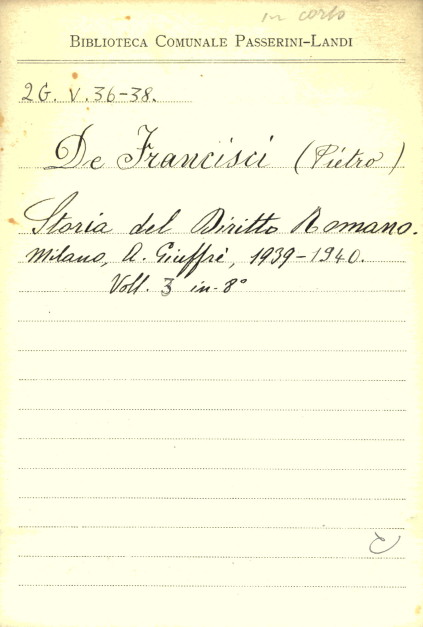 in corso
BIBLIOTECA COMUNALE PASSERINI-LANDI
2G. V. 36-38.
De Francisci (Pietro)
Storia del Diritto Romano.
Milano, A. Giuffrè, 1939-1940.
Voll. 3 in-8°
C